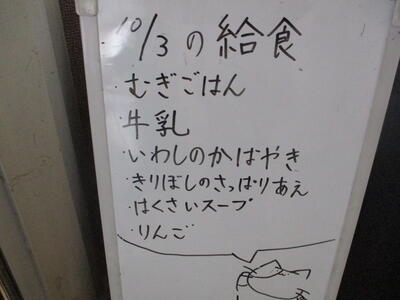 10/3の給食
・むぎごはん
・牛乳
・いわしのかばやき
・きりぼしのさっぱりあえ
・はくさいスープ
・りんご